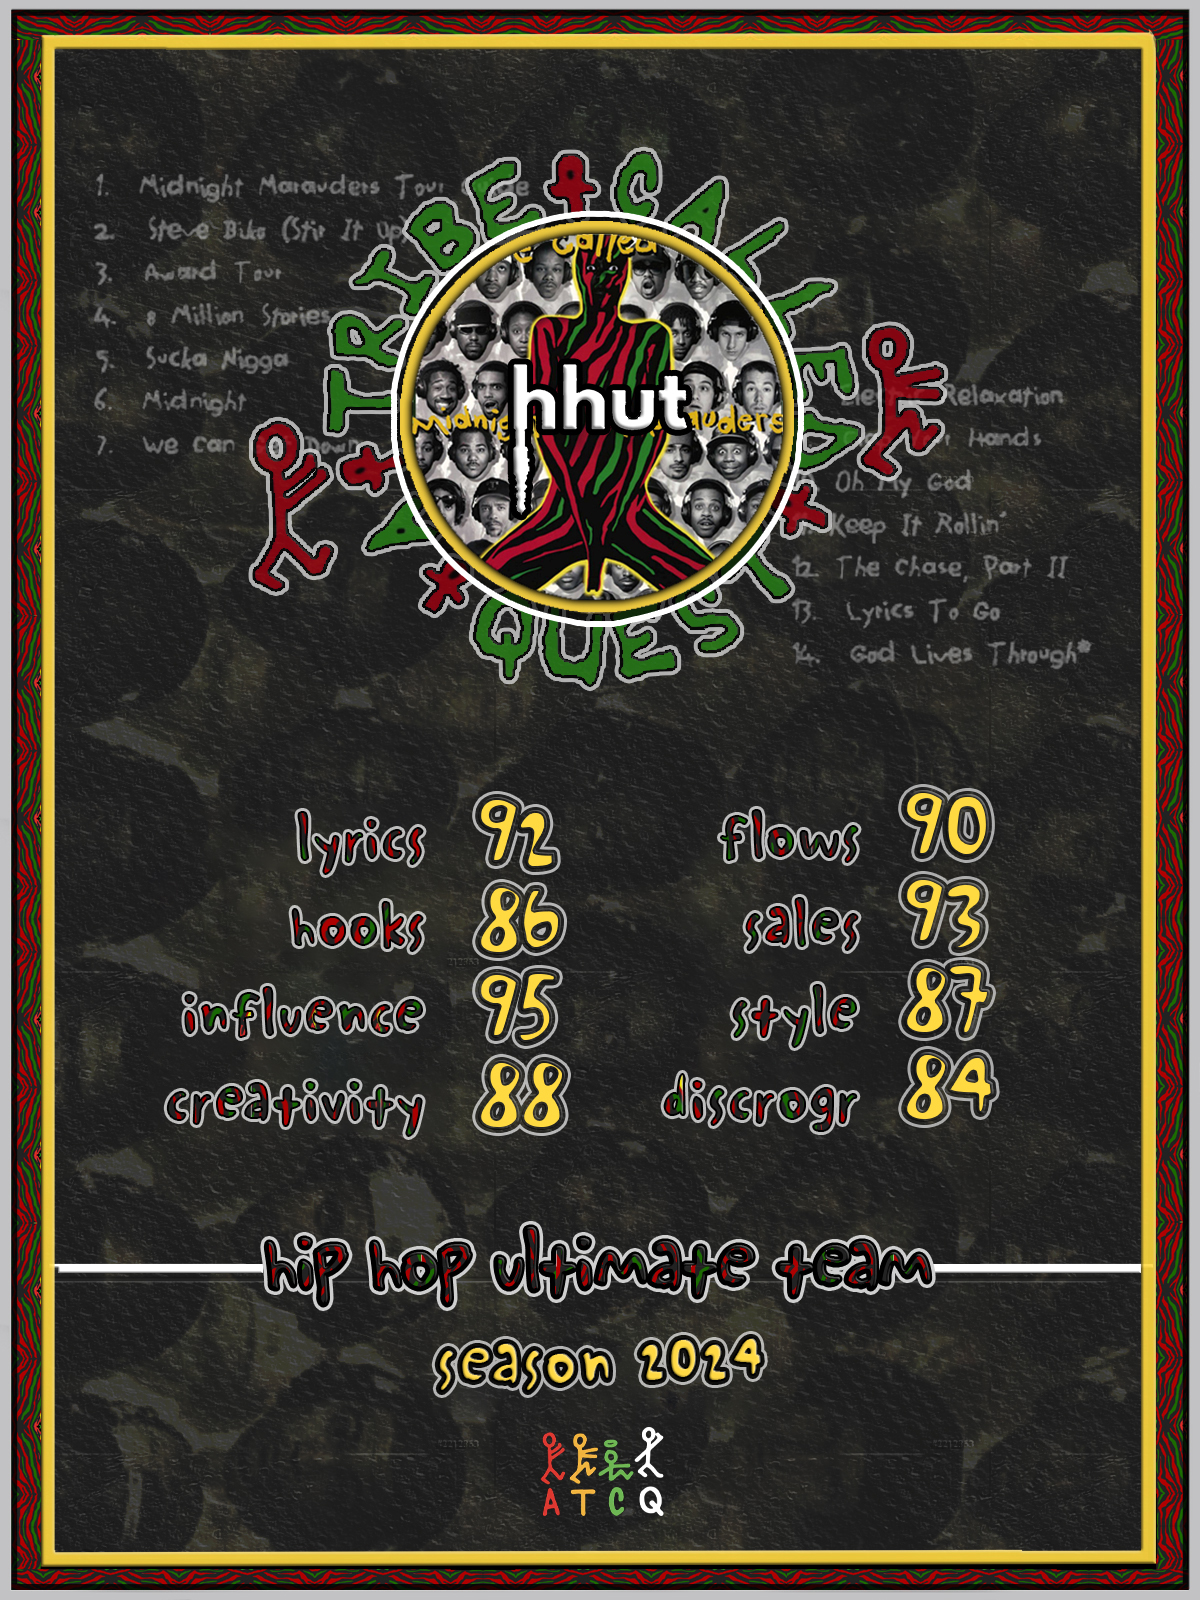 A TRIBE CALLED QUEST
1. Midnight Marauders Tour Guide
2. Steve Biko (Stir It Up)
3. Award Tour
4. 8 Million Stories
5. Sucka Nigga
6. Midnight
7. We Can Down
Called
hhut
Midni
auders
Relaxation
Hands
Oh My God
Keep It Rollin'
12. The Chase, Part II
13. Lyrics To Go
14. God Lives Through*
lyrics 92 flows 90
hooks 86 sales 93
influence 95 style 87
creativity 88 discrogr 84
hip hop ultimate team
season 2024
A T C Q